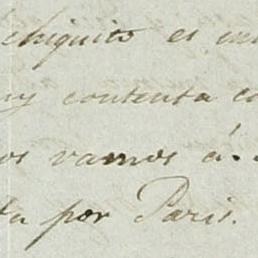 chiquito es
contenta
vamos á
por Paris.